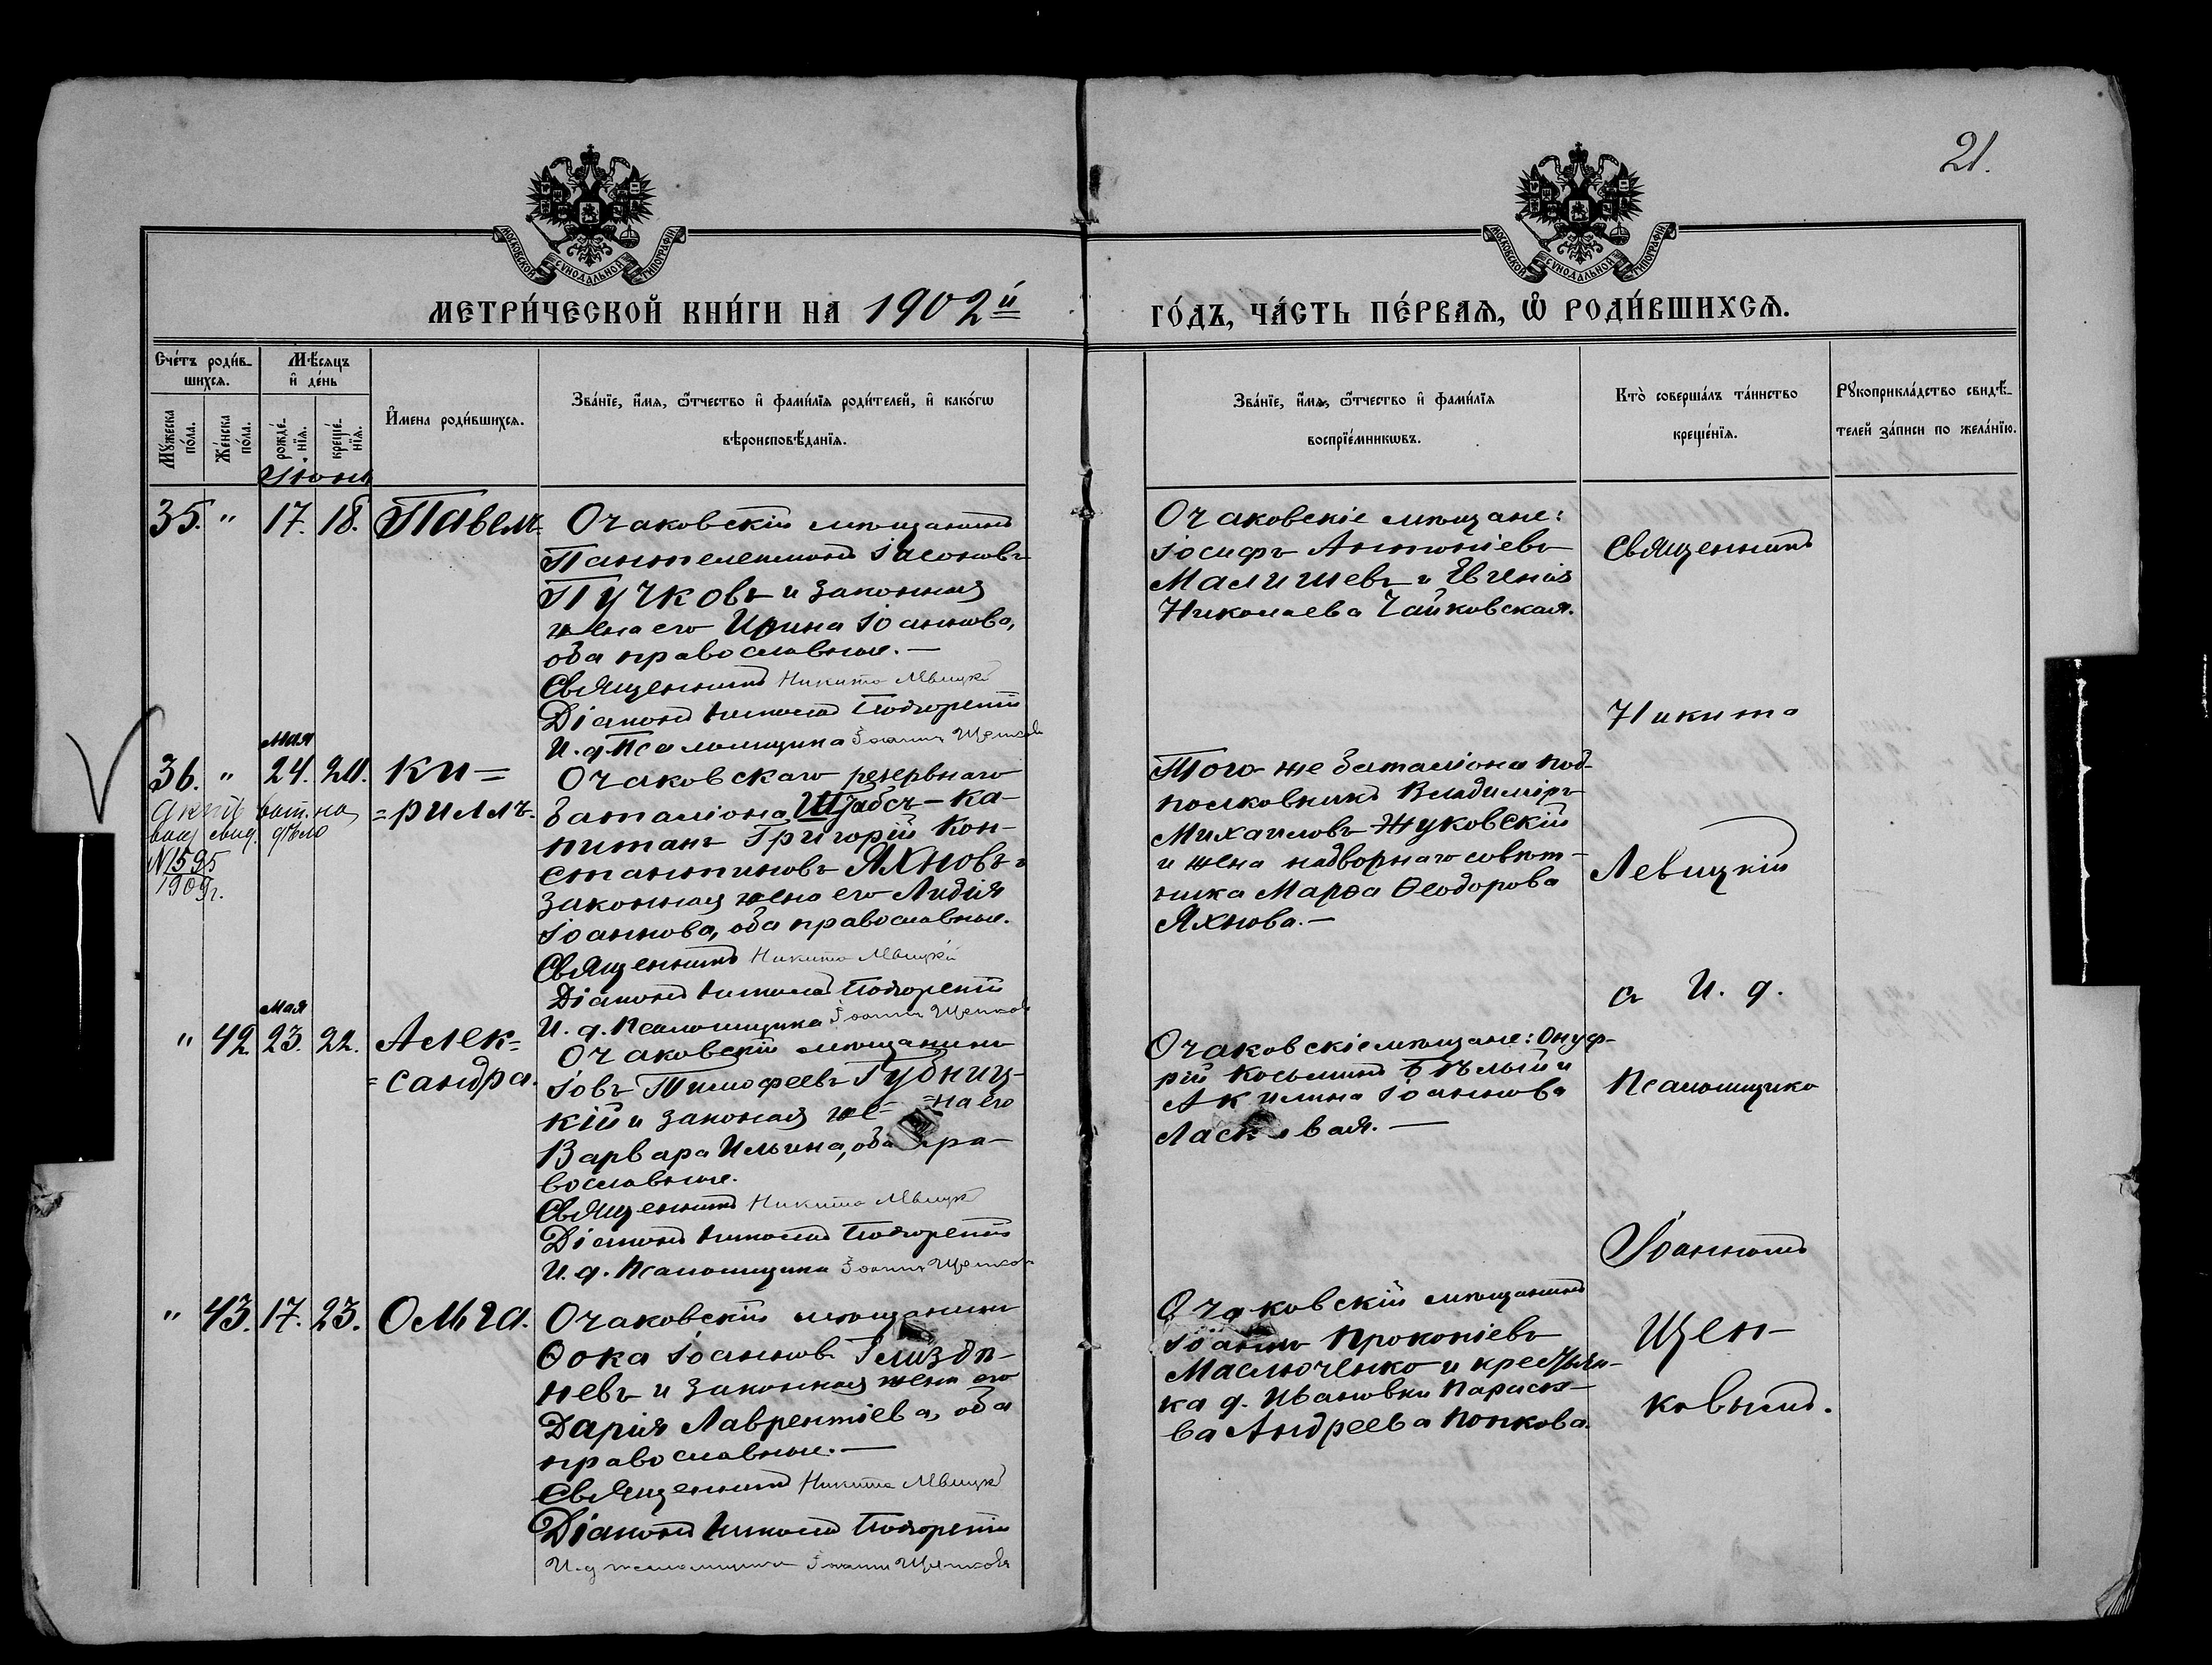 21.
МОСКОВСКОЙ СУНОДАЛЬНОЙ ТИПОГРАФІИ
МОСКОВСКОЙ СУНОДАЛЬНОЙ ТИПОГРАФІИ
МЕТРИ́ЧЕСКОЙ КНИ́ГИ НА 1902й
ГО́ДЪ, ЧА́СТЬ ПЕ́РВАЯ, Ѡ РОДИ́ВШИХСЯ.
Сче́тъ роди́в-
шихся.
Мѣ́сяцъ
и де́нь
Мꙋжеска по́ла.
Же́нска по́ла.
рожде́нїя.
креще́нїя.
И҆мена роди́вшихся.
Зва́нїе, и҆́мя, ѻ҆́тчество и҆ фами́лїя роди́телей, и҆ како́гѡ
вѣроисповѣ́данїя.
Зва́нїе, и҆́мя, ѻ҆́тчество и҆ фами́лїя
воспрїе́мникѡвъ.
Кто̀ соверша́лъ та́инство
креще́нїя.
Рꙋкоприкла́дство свидѣ́-
телей за́писи по жела́нїю.
Іюнь
35. " 17. 18. Павелъ.
Очаковскій мѣщанинъ
Пантелеимонъ Іасоновъ
Пучковъ и законная
жена его Ирина Іоаннова,
оба православные.—
Священникъ Никита Левицкій
Діаконъ Николай
И. д. Псаломщика Іоаннъ Щепковъ
Очаковскіе мѣщане:
Іосифъ Антоніевъ
Малишевъ и Евгенія
Николаева Чайковская.
Мая
36. " 24. 20. Ки=
=риллъ.
Актъ
N 1595
1909 г.
Очаковскаго резервнаго
баталіона Штабсъ-Ка-
питанъ Григорій Кон-
стантиновъ Яхновъ и
законная жена его Лидія
Іоаннова, оба православные.
Священникъ Никита Левицкій
Діаконъ Николай
И. д. Псаломщика Іоаннъ Щепковъ
Того же баталіона под-
полковникъ Владиміръ
Михаиловъ Жуковскій
и жена надворнаго совѣт-
ника Марѳа Ѳеодорова
Яхнова.—
Мая
" 42. 23. 22. Алек=
=сандра.
Очаковскій мѣщанинъ
Іовъ Тимофеевъ Губниц-
кій и законная же= =на его
Варвара Ильина, оба пра-
вославные.
Священникъ Никита Левицкій
Діаконъ Николай
И. д. Псаломщика Іоаннъ Щепковъ
Очаковскіе мѣщане: Онуф-
рій Косьминъ Бѣлый и
Акилина Іоаннова
Ласковая.—
" 43. 17. 23. Ольга.
Очаковскій мѣщанинъ
Ѳока Іоанновъ
невъ и законная жена его
Дарія Лаврентіева, оба
православные.—
Священникъ Никита Левицкій
Діаконъ Николай
И. д. псаломщика Іоаннъ Щепковъ
Очаковскій мѣщанинъ
Іоаннъ Прокопіевъ
Маслюченко и крестьян-
ка д. Ивановки Параске-
ва Андреева Попкова.
Священникъ
Никита
Левицкій
съ И. д.
Псаломщика
Іоанномъ
Щеп-
ковымъ.